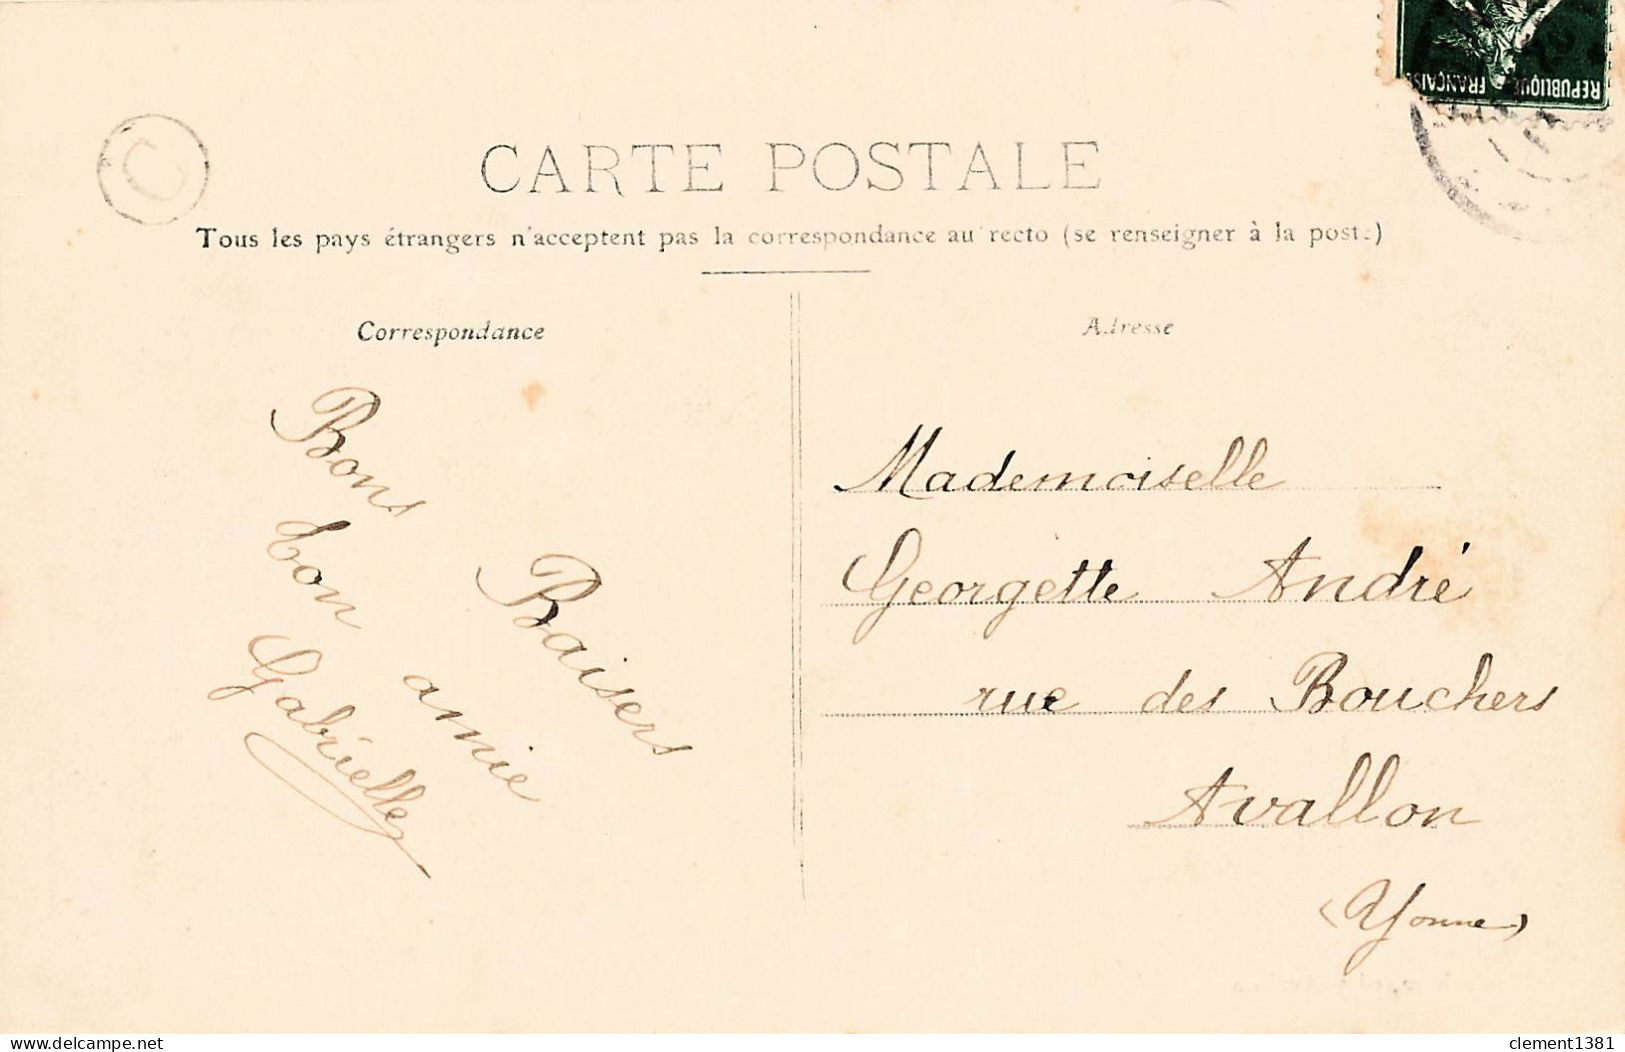 RÉPUBLIQUE FRANÇAISE
C
CARTE POSTALE
Tous les pays étrangers n'acceptent pas la correspondance au recto (se renseigner à la poste)
Correspondance
Adresse
Bons Baisers
ton amie
Gabrielle
Mademoiselle
Georgette André
rue des Bouchers
Avallon
(Yonne)
delcampe.net
clement1381